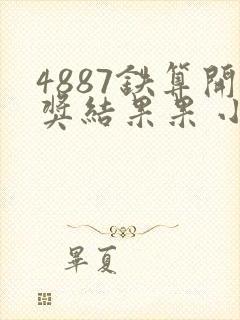 4887鉄算開
奖結果果小
畢夏